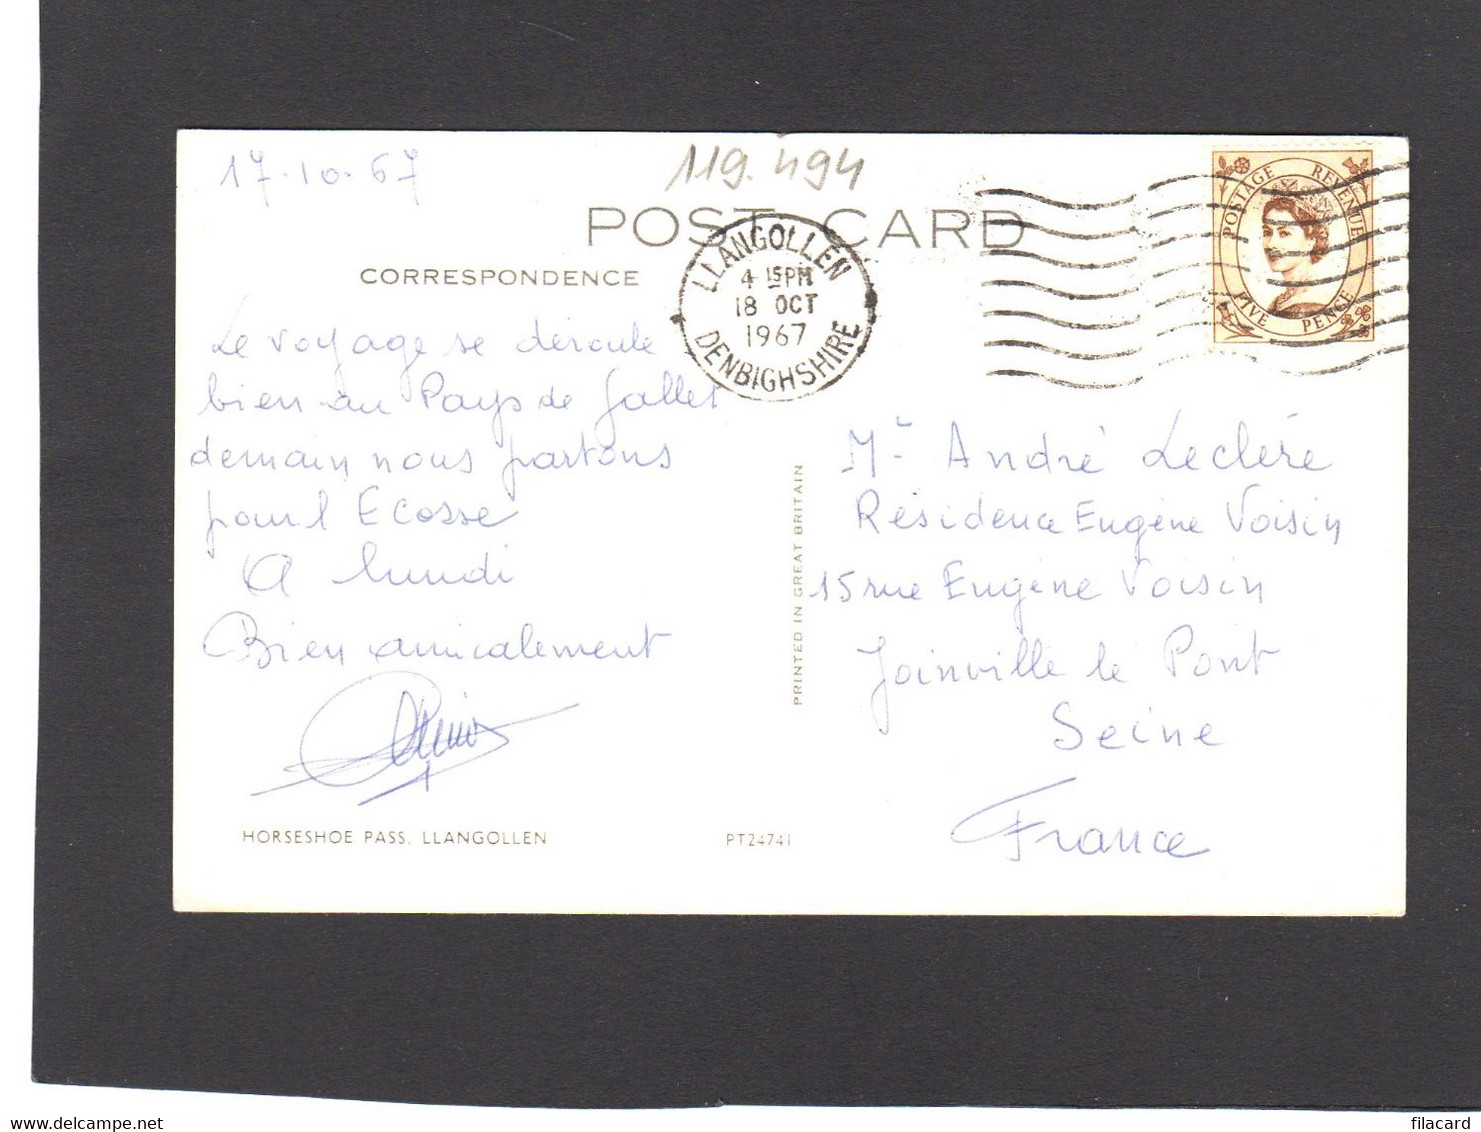 17-10-67
119.494
POST CARD
CORRESPONDENCE
LLANGOLLEN
4 15PM
18 OCT
1967
DENBIGHSHIRE
POSTAGE REVENUE
FIVE PENCE
Le voyage se déroule
bien au Pays de Galles
demain nous partons
pour l Ecosse
A lundi
Bien amicalement
HORSESHOE PASS, LLANGOLLEN
PT24741
PRINTED IN GREAT BRITAIN
Mr André Lecléré
Résidence Eugène Voisin
15 rue Eugène Voisin
Joinville le Pont
Seine
France
filacard